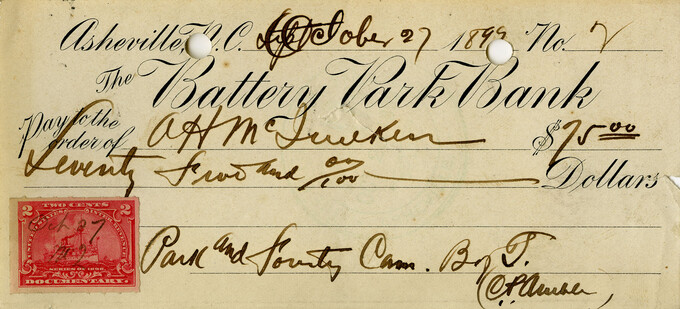 Asheville, N.C. October 27 1899 No. 2
The Battery Park Bank
Pay to the order of A H Mc $75 00
Seventy Five and 00/100 Dollars
TWO CENTS
2 2
Oct 27
SERIES OF 1898
DOCUMENTARY.
Park and Forestry Com. By T.